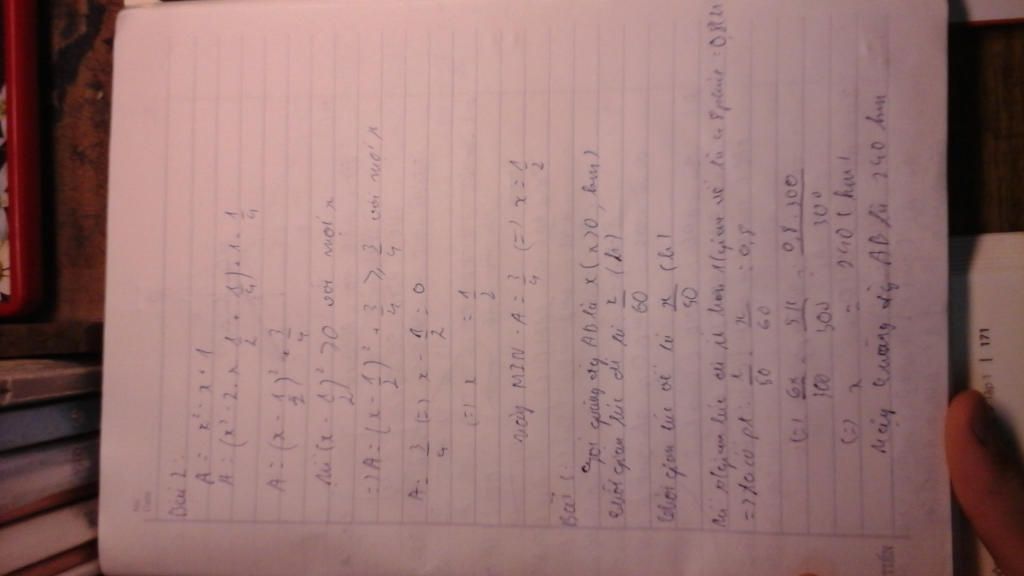 Bài 2:
A = x² - x + 1
A = (x² - 2 . x . 1/2 + 1/4) + 1 - 1/4
A = (x - 1/2)² + 3/4
Mà (x - 1/2)² ≥ 0 với mọi x
=> A = (x - 1/2)² + 3/4 ≥ 3/4 với mọi x
A = 3/4 (=) x - 1/2 = 0
(=) x = 1/2
Vậy MIN A = 3/4 (=) x = 1/2
Bài
Gọi quãng đg AB là x (x > 0, km)
thời gian lúc đi là x/60 (h)
thời gian lúc về là x/50 (h)
Mà thời gian lúc đi ít hơn thời gian về là 48 phút = 0,8h
=> Ta có pt: x/50 - x/60 = 0,8
(=) 6x/300 - 5x/300 = 0,8.300/300
(=) x = 240 (km)
Vậy quãng đg AB là 240 km
171